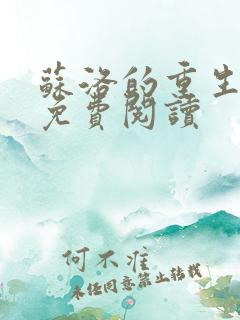 蘇洛的重生
免費閱讀
何不淮
未经同意禁止转载